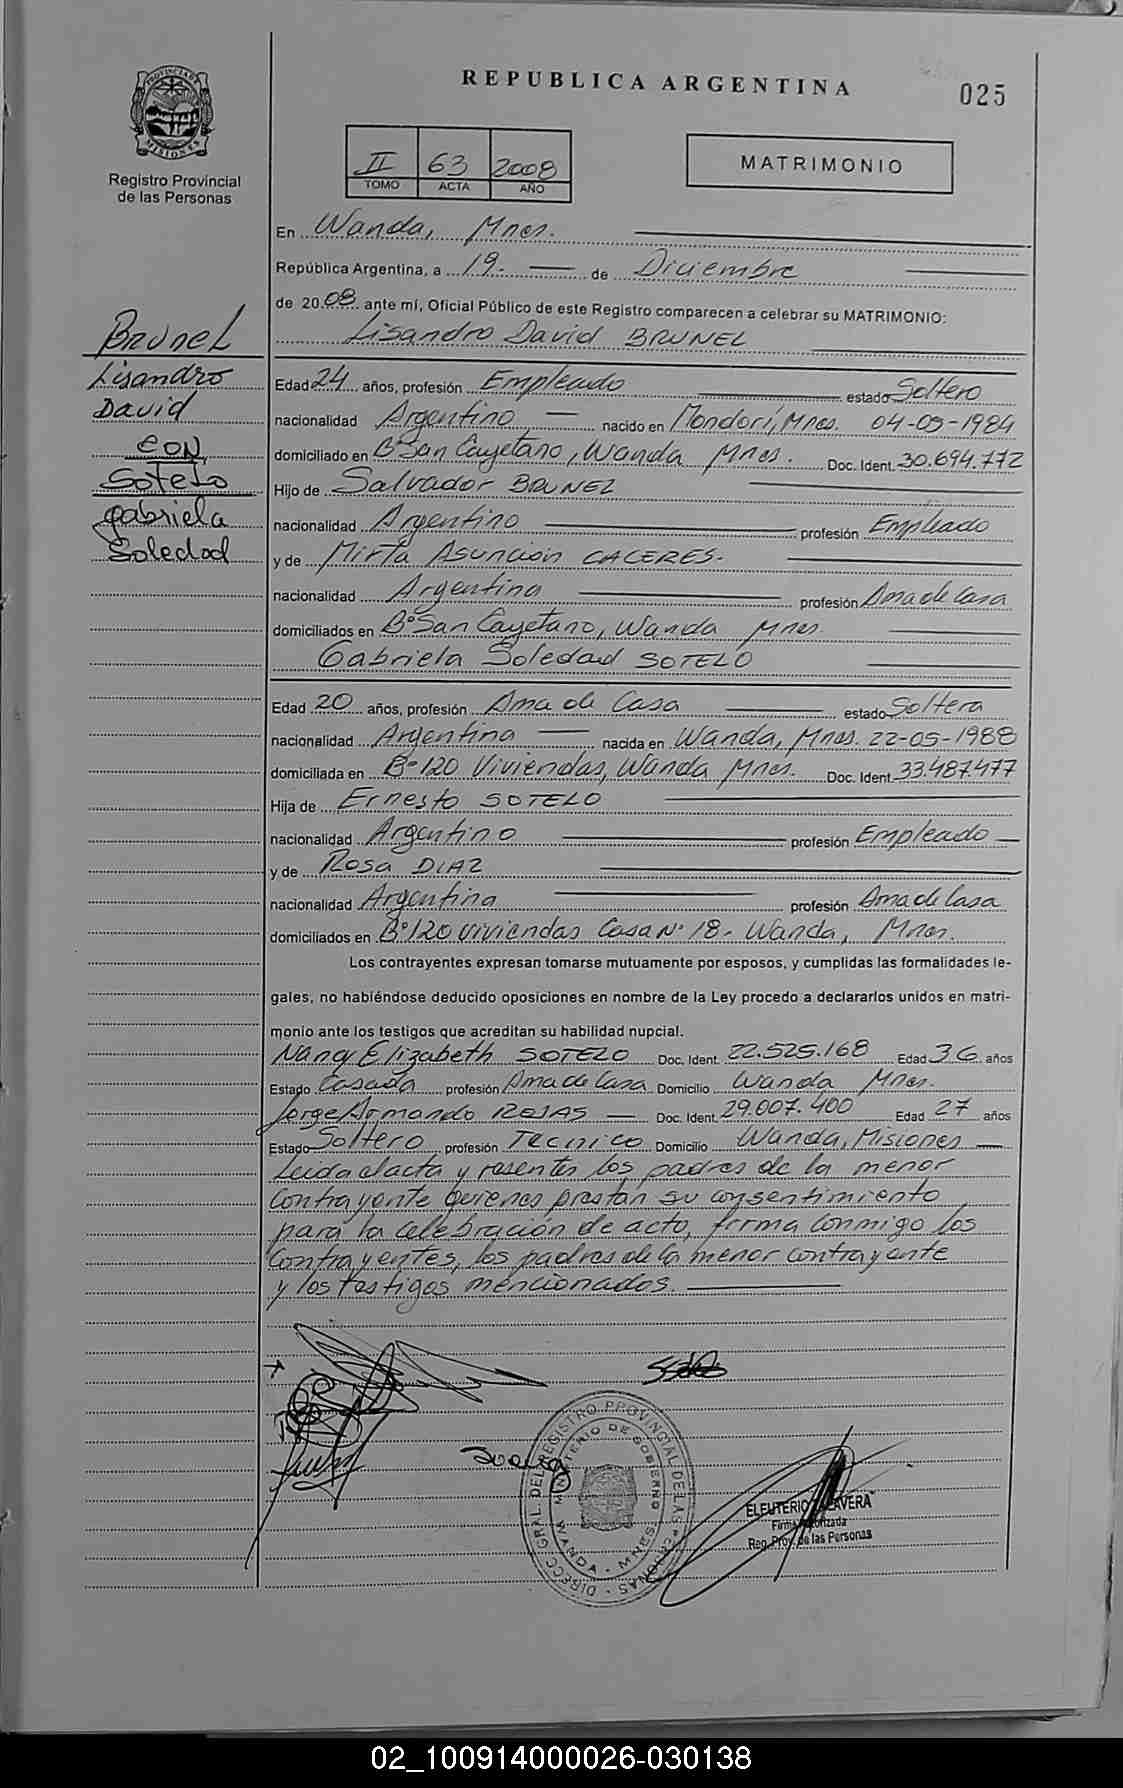 REPUBLICA ARGENTINA
025
PROVINCIA DE MISIONES
Registro Provincial
de las Personas
II 63 2008
TOMO ACTA AÑO
MATRIMONIO
En Wanda, Mnes.
República Argentina, a 19. de Diciembre
de 2008 ante mí, Oficial Público de este Registro comparecen a celebrar su MATRIMONIO:
Lisandro David BRUNEL
Brunel
Lisandro
David
con
Sotelo
Gabriela
Soledad
Edad 24 años, profesión Empleado estado Soltero
nacionalidad Argentino nacido en Mondorí, Mnes. 04-09-1984
domiciliado en B° San Cayetano, Wanda Mnes. Doc. Ident. 30.694.772
Hijo de Salvador BRUNEL
nacionalidad Argentino profesión Empleado
y de Mirta Asunción CACERES.
nacionalidad Argentina profesión Ama de Casa
domiciliados en B° San Cayetano, Wanda Mnes.
Gabriela Soledad SOTELO
Edad 20 años, profesión Ama de Casa estado Soltera
nacionalidad Argentina nacida en Wanda, Mnes. 22-05-1988
domiciliada en B° 120 Viviendas, Wanda Mnes. Doc. Ident. 33.487.477
Hija de Ernesto SOTELO
nacionalidad Argentino profesión Empleado
y de Rosa DIAZ
nacionalidad Argentina profesión Ama de Casa
domiciliados en B° 120 viviendas Casa N° 18- Wanda, Mnes.
Los contrayentes expresan tomarse mutuamente por esposos, y cumplidas las formalidades le-
gales, no habiéndose deducido oposiciones en nombre de la Ley procedo a declararlos unidos en matri-
monio ante los testigos que acreditan su habilidad nupcial.
Nancy Elizabeth SOTELO Doc. Ident. 22.525.168 Edad 36 años
Estado Casada profesión Ama de Casa Domicilio Wanda Mnes.
Jorge Armando ROJAS Doc. Ident. 29.007.400 Edad 27 años
Estado Soltero profesión Tecnico Domicilio Wanda, Misiones
Leida el acta y presentes los padres de la menor
contrayente quienes prestan su consentimiento
para la celebración de acto, firma conmigo los
contrayentes, los padres de la menor contrayente
y los testigos mencionados.
DIRECC. GRAL. DEL REGISTRO PROVINCIAL DE LAS PERSONAS
MINISTERIO DE GOBIERNO
WANDA - MNES.
ELEUTERIO TALAVERA
Firma Autorizada
Reg. Prov. de las Personas
02_100914000026-030138